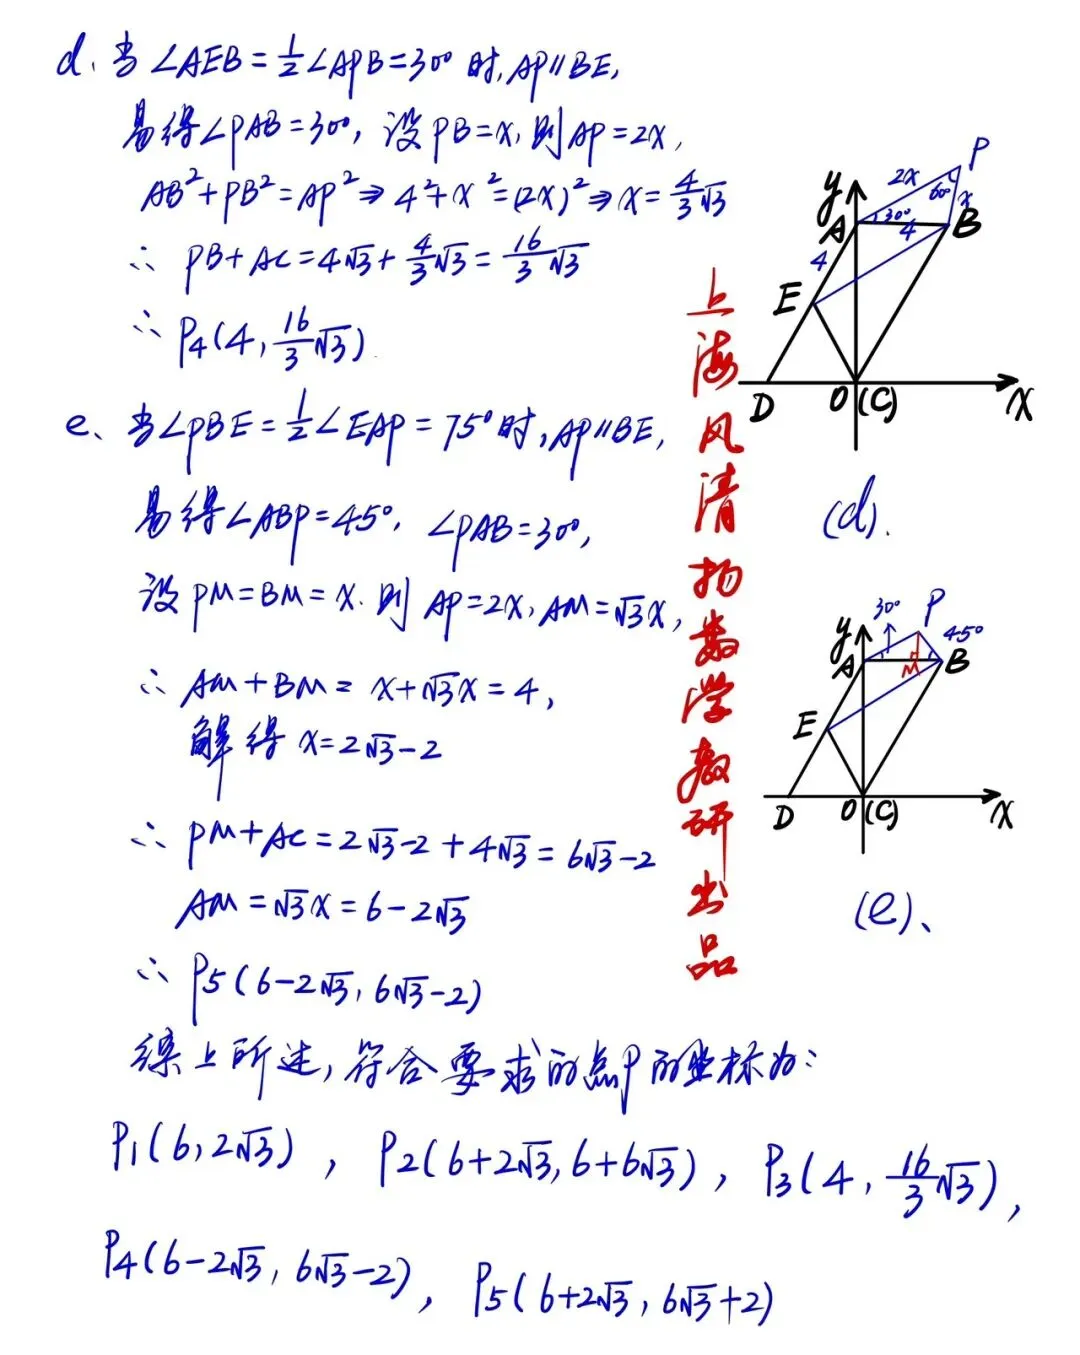 d、当∠AEB=½∠APB=30°时,AP∥BE,
易得∠PAB=30°, 设PB=x,则AP=2x,
AB²+PB²=AP²⇒4²+x²=(2x)²⇒x=4/3√3
∴ PB+AC=4√3+4/3√3=16/3√3
∴ P4(4,16/3√3).
e、当∠PBE=½∠EAP=75°时,AP∥BE,
易得∠ABP=45°, ∠PAB=30°,
设PM=BM=x.则AP=2x,AM=√3x,
∴ AM+BM=x+√3x=4,
解得 x=2√3-2
∴ PM+AC=2√3-2+4√3=6√3-2
AM=√3x=6-2√3
∴ P5(6-2√3,6√3-2)
综上所述,符合要求的点P的坐标为:
P1(6,2√3), P2(6+2√3,6+6√3), P3(4,16/3√3),
P4(6-2√3,6√3-2), P5(6+2√3,6√3+2)
上海风清扬数学教研出品
P
2x
60°
x
y
A
30°
4
B
4
E
D
O(C)
X
(d).
30°
P
45°
y
A
M
B
E
D
O(C)
X
(e)、